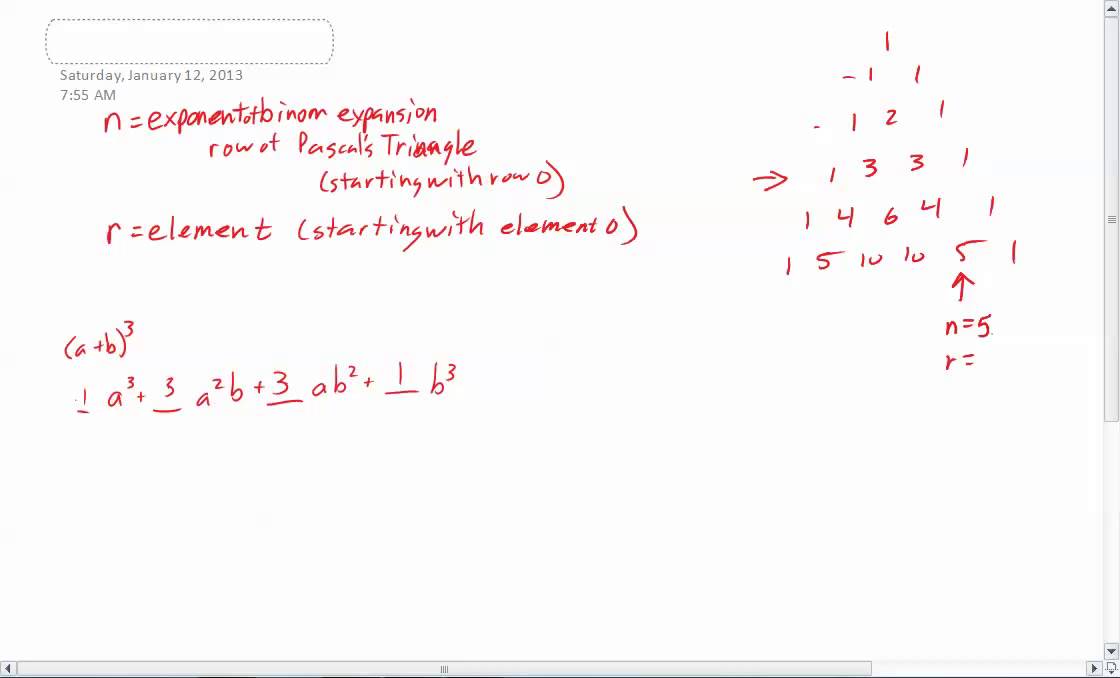 Saturday, January 12, 2013
7:55 AM
n = exponent of binom expansion
row of Pascal's Triangle
(starting with row 0)
r = element (starting with element 0)
(a+b)³
1 a³ + 3 a²b + 3 ab² + 1 b³
1
- 1 1
- 1 2 1
→ 1 3 3 1
1 4 6 4 1
1 5 10 10 5 1
↑
n=5
r=